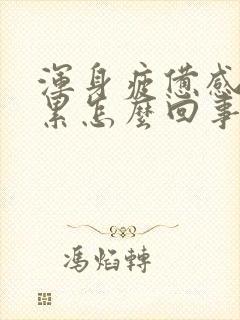 渾身疲憊感
累怎麼回事
馮焰轉